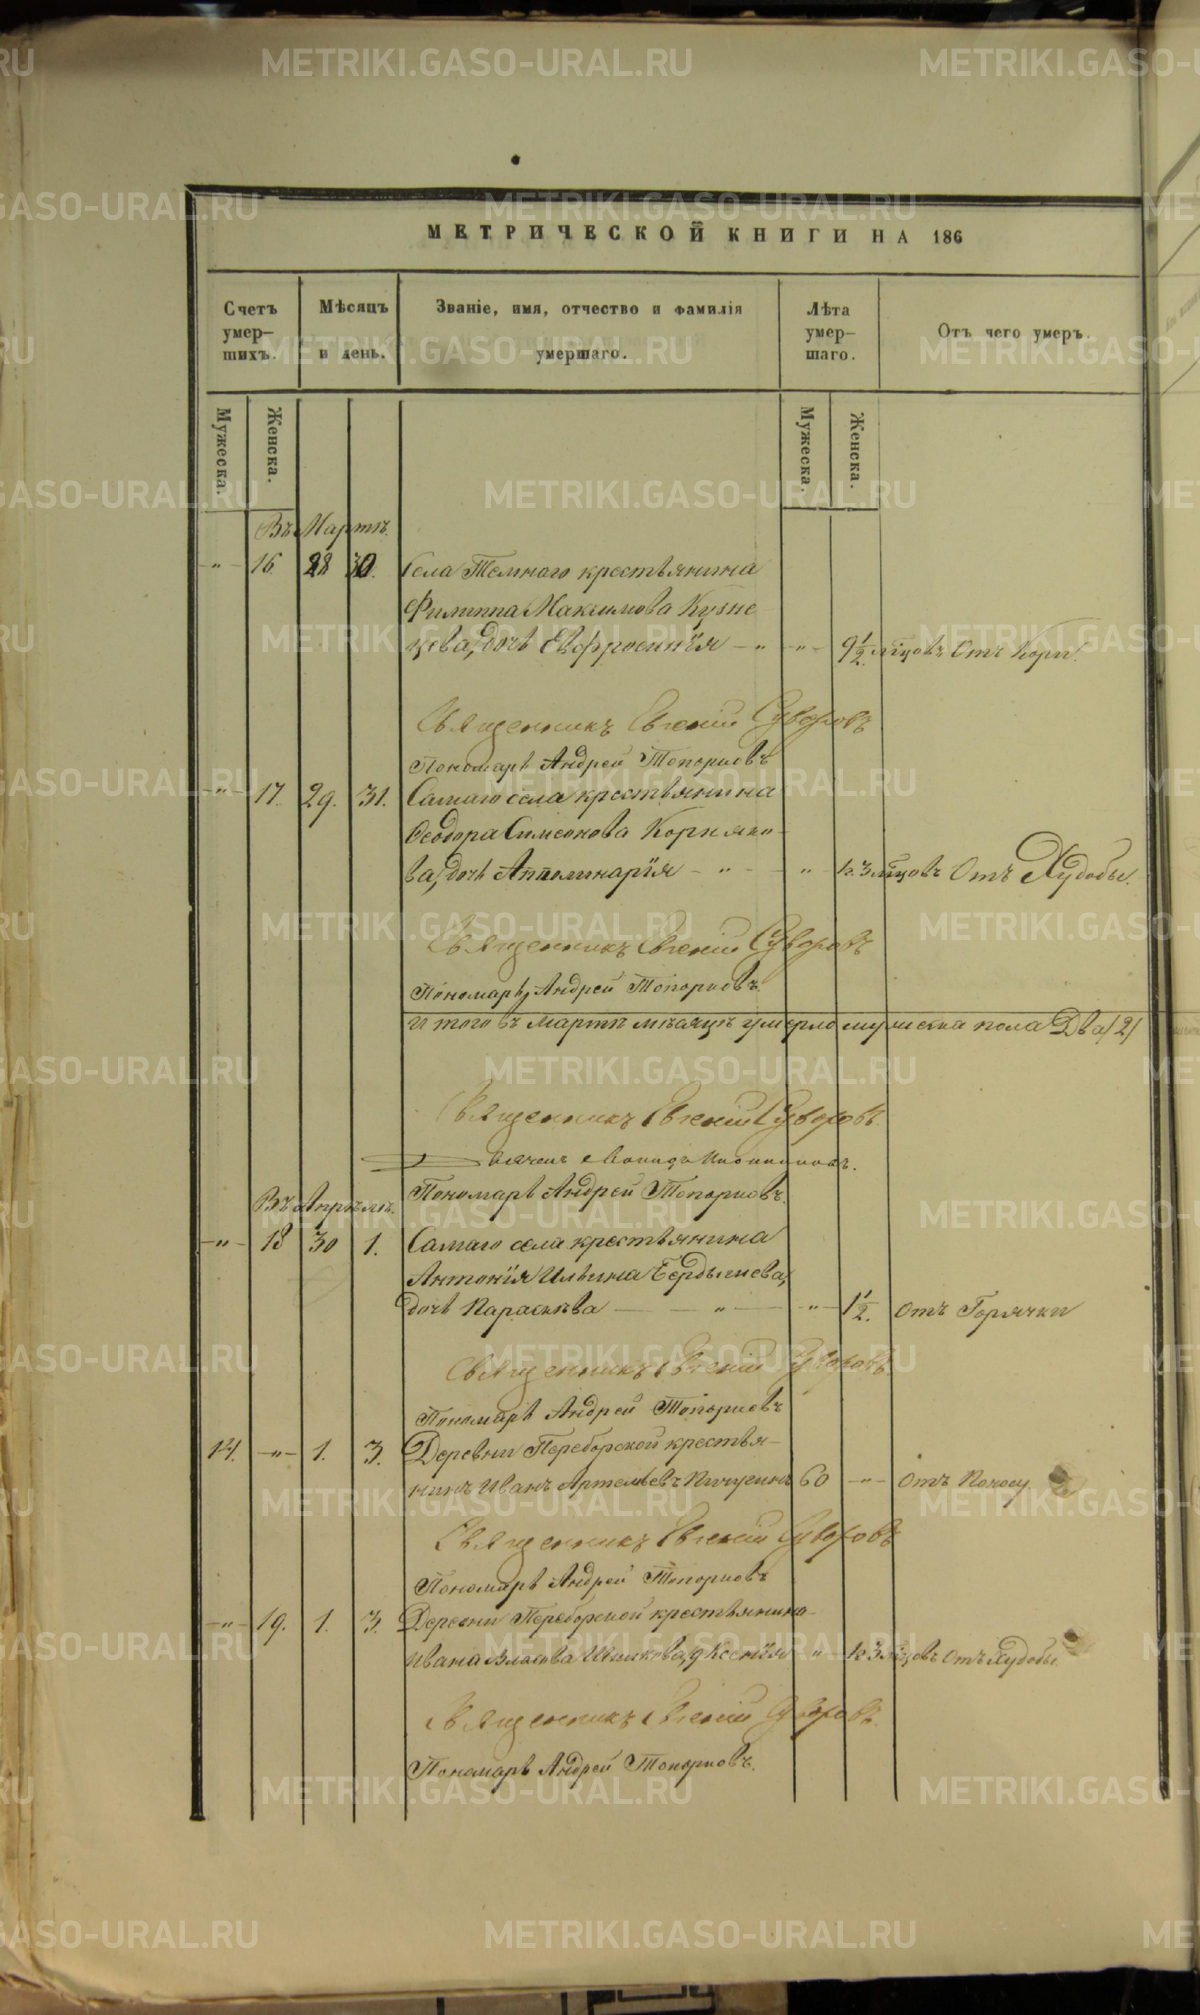 МЕТРИЧЕСКОЙ КНИГИ НА 186
Счетъ умер-шихъ.
Мѣсяцъ и день.
Званіе, имя, отчество и фамилія умершаго.
Лѣта умер-шаго.
Отъ чего умеръ.
Мужеска. Женска. Мужеска. Женска.
Въ Мартѣ.
" 16 28 30. Села Темнаго крестьянина
Филиппа Максимова Кузне
цева, дочь Евфросинія " " 9 1/2 мѣсцовъ Отъ Кори.
Священникъ Евгений Суворовъ
Пономарь Андрей Топорковъ
" 17. 29. 31. Самаго села крестьянина
Ѳеодора Симеонова Корняко-
ва, дочь Апполинарія " " к. 3 мѣсцовъ Отъ Худобы.
Священникъ Евгений Суворовъ
Пономарь Андрей Топорковъ
Итого въ Мартѣ мѣсяцѣ умерло мужеска пола Два /2/
Священникъ Евгений Суворовъ
Пономарь Андрей Топорковъ.
Въ Апрѣлѣ.
" 18 30 1. Самаго села крестьянина
Антонія Ильина Бердышева,
дочь Параскева " " 1 1/2. отъ Горячки
Священникъ Евгений Суворовъ
Пономарь Андрей Топорковъ
14. " 1. 3. Деревни Переборской крестья-
нинъ Иванъ Артемьевъ Пичугинъ 60 " отъ Поносу
Священникъ Евгений Суворовъ
Пономарь Андрей Топорковъ
" 19. 1. 3. Деревни Переборской крестьянина
Ивана Власова Шишкова, д Ксенія " к 3 мѣсцовъ Отъ Худобы.
Священникъ Евгений Суворовъ
Пономарь Андрей Топорковъ.
METRIKI.GASO-URAL.RU